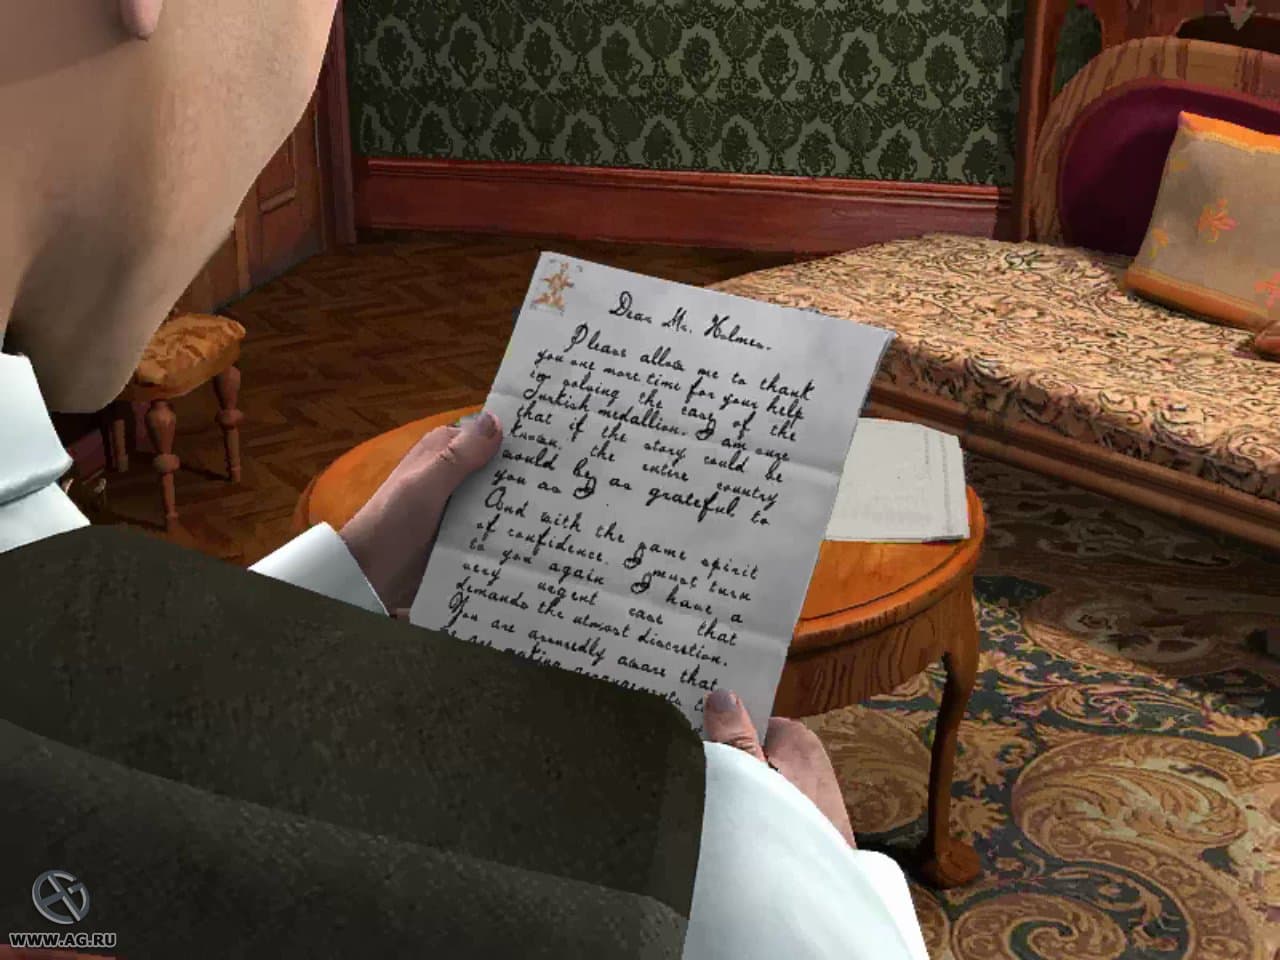 Dear Mr. Holmes.
Please allow me to thank
you one more time for your help
in solving the case of the
Turkish medallion. I am sure
that if the story could be
known, the entire country
would be as grateful to
you as I.
And with the same spirit
of confidence. I must turn
to you again I have a
very urgent case that
demands the utmost discretion.
You are assuredly aware that
making arrangements
WWW.AG.RU